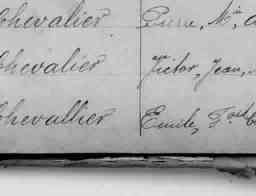 Chevalier Pierre, M
Chevalier Victor, Jean,
Chevallier Emile,